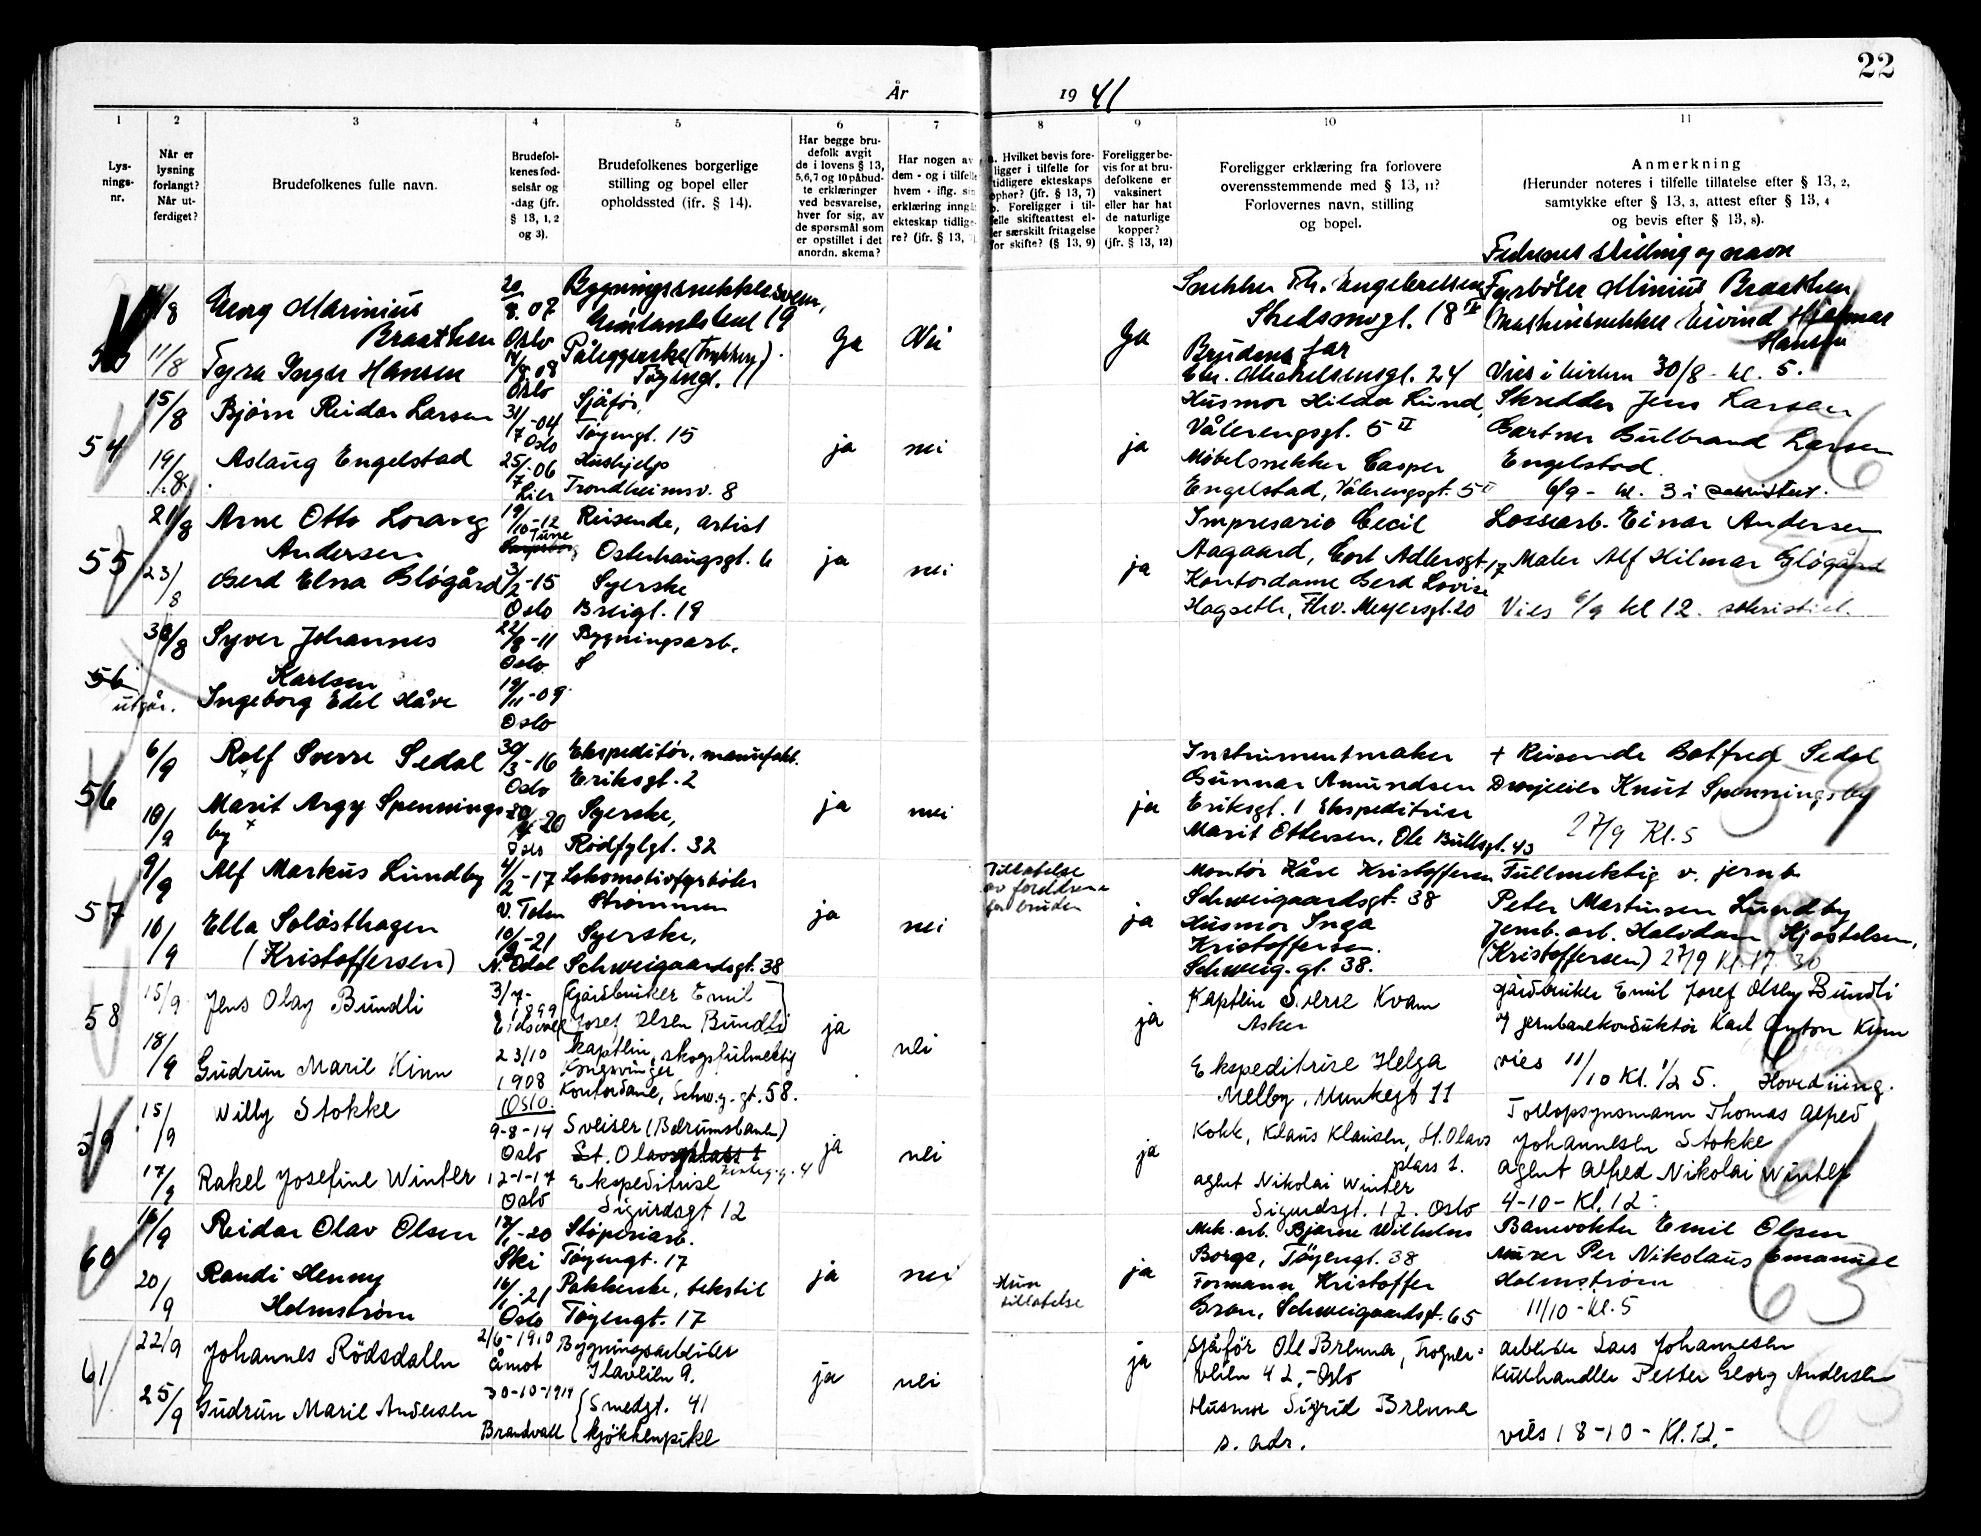 22
År 1941
1 2 3 4 5 6 7 8 9 10 11
Lys-
nings-
nr.
Når er
lysning
forlangt?
Når ut-
ferdiget?
Brudefolkenes fulle navn.
Brudefol-
kenes fød-
selsår og
-dag (jfr.
§ 13, 1, 2
og 3).
Brudefolkenes borgerlige
stilling og bopel eller
opholdssted (ifr. § 14).
Har begge bru-
defolk avgit
de i lovens § 13,
5,6,7 og 10 påbud-
te erklæringer
ved besvarelse,
hver for sig, av
de spørsmål som
er opstillet i det
anordn. skema?
Har nogen av
dem - og i tilfelle
hvem - iflg. sin
erklæring inngåt
ekteskap tidlige-
re? (jfr. § 13,
a. Hvilket bevis fore-
ligger i tilfelle for
tidligere ekteskaps
ophør? (jfr. § 13, 7)
b. Foreligger i til-
felle skifteattest el-
ler særskilt fritagelse
for skifte? (§ 13, 9)
Foreligger be-
vis for at bru-
defolkene er
vaksinert
eller har hat
de naturlige
kopper?
(jfr. § 13, 12)
Foreligger erklæring fra forlovere
overensstemmende med § 13, 11?
Forlovernes navn, stilling
og bopel.
Anmerkning
(Herunder noteres i tilfelle tillatelse efter § 13, 2,
samtykke efter § 13, 3, attest efter § 13, 4
og bevis efter § 13, 8).
Fedrenes stilling og navn
11/8 Georg Marinius
Braathen
20/8.07
Oslo
Bygningssnekkersvenn,
Grønlandsleret 19
11/8 Tyra Inger Hansen
08
Oslo
Påleggerske (Trykkeri).
Tøyengt. 11
Ja Nei Ja
Snekker Th. Engebretsen
Skedsmogt. 18 IV
Brudens far
Chr. Michelsensgt. 24
Fyrbøter Minius Braathen
Maskinsnekker Eivind Hjalmar
Hansen
Vies i kirken 30/8 - kl. 5.
54
15/8 Bjørn Reidar Larsen
31/7-04
Oslo
Sjåfør,
Tøyengt. 15
19/8. Aslaug Engelstad
25/7-06
Lier
Hushjelp
Trondheimsv. 8
ja nei ja
Husmor Hilda Lund,
Vålerengsgt. 5 II
Møbelsnekker Casper
Engelstad, Vålerengsgt. 5 II
Skredder Jens Larsen
Gartner Gulbrand Larsen
Engelstad.
6/9 - kl. 3 i sakristiet.
56
55
21/8 Arne Otto Lorang
Andersen
19/10-12
Tune
Reisende, artist
Osterhausgt. 6
23/8 Gerd Elna Bløgård
3/2-15
Oslo
Syerske
Breigt. 19
ja nei ja
Impresario Cecil
Aagaard, Cort Adlersgt. 17
Kontordame Gerd Lovise
Hagseth, Thv. Meyersgt. 20
Lossearb. Einar Andersen
Maler Alf Hilmar Bløgård
Vies 6/9 kl 12. sakristiet.
57
56
utgår.
30/8 Syver Johannes
Karlsen
22/8-11
Oslo
Bygningsarb.
S
Ingeborg Edel Håve
19/11-09
Oslo
56
6/9 Rolf Sverre Sedal
30/3-16
Oslo
Ekspeditør, manufakt.
Eriksgt. 2
10/9 Marit Argy Spennings
by
20
Oslo
Syerske,
Rødfylgt. 32
ja nei ja
Instrumentmaker
Gunnar Amundsen
Eriksgt. 1 Ekspeditrise
Marit Ottersen, Ole Bullsgt. 43
+ Reisende Botfred Sedal
Drosjeeier Knut Spenningsby
27/9 Kl. 5
59
57
9/9 Alf Markus Lundby
4/2-17
V. Toten
Lokomotivfyrbøter
Strømmen
10/9 Ella Soløsthagen
(Kristoffersen)
10/9-21
N. Odal
Syerske,
Schweigaardsgt. 38
ja nei
Tillatelse
av foreldrene
for bruden
ja
Montør Kåre Kristoffersen
Schweigaardsgt. 38
Husmor Inga
Kristoffersen.
Schweig. gt. 38.
Fullmektig v. jernb.
Peter Martinsen Lundby
Jernb. arb. Halvdan Kjostelsen,
(Kristoffersen) 27/9 Kl. 17.30
58
15/9 Jens Olav Bundli
3/7-
1899
Eidsvoll
(gårdbruker Emil
Josef Olsen Bundli)
Kaptein, skogsfulmektig
Kongsvinger
18/9 Gudrun Marie Kinn
23/10
1908
Oslo
Kontordame, Schw.g-gt. 58.
ja nei ja
Kaptein Sverre Kvam
Asker
Ekspeditrise Helga
Melby, Munkegt 11
gårdbruker Emil Josef Olsen Bundli
og jernbanekonduktør Karl Anton Kinn
vies 11/10 Kl. 1/2 5. Hovedøing.
59
15/9 Willy Stokke
9-8-14
Oslo
Sveiser (Bærumsbanen)
St. Olavsplass 1
17/9 Rakel Josefine Winter
12-1-17
Oslo
Ekspeditrise
Sigurdsgt 12
ja nei ja
Kokk, Klaus Klausen, St. Olavs
plass 1.
agent Nikolai Winter
Sigurdsgt. 12. Oslo
Tollopsynsmann Thomas Alfred
Johannesen Stokke
agent Alfred Nikolai Winter
4-10-Kl. 12-
61
60
16/9 Reidar Olav Olsen
17/1-20
Ski
Støperiarb.
Tøyengt. 17
20/9 Randi Henny
Holmstrøm
16/1-21
Oslo
Pakkerske, tekstil
Tøyengt. 17
ja nei
Hun
tillatelse
ja
Mek. arb. Bjarne Wilhelms
Borge, Tøyengt. 38
Formann Kristoffer
Gran, Schweigaardsgt. 65
Banevokter Emil Olsen
Murer Per Nikolaus Emanuel
Holmstrøm
11/10 - kl. 5
63
61
22/9 Johannes Rödsdalen
2/6-1910
Åmot
Bygningsarbeider
Ilaveien 9.
25/9 Gudrun Marie Andersen
30-10-1914
Brandvall
Smedgt. 41
kjøkkenpike
ja nei ja
Sjåför Ole Brenna, Frogner-
veien 42,- Oslo
Husmor Sigrid Brenna
s. adr.
arbeider Lars Johannesen
Kullhandler Petter Georg Andersen
vies 18-10-Kl. 12,-
65